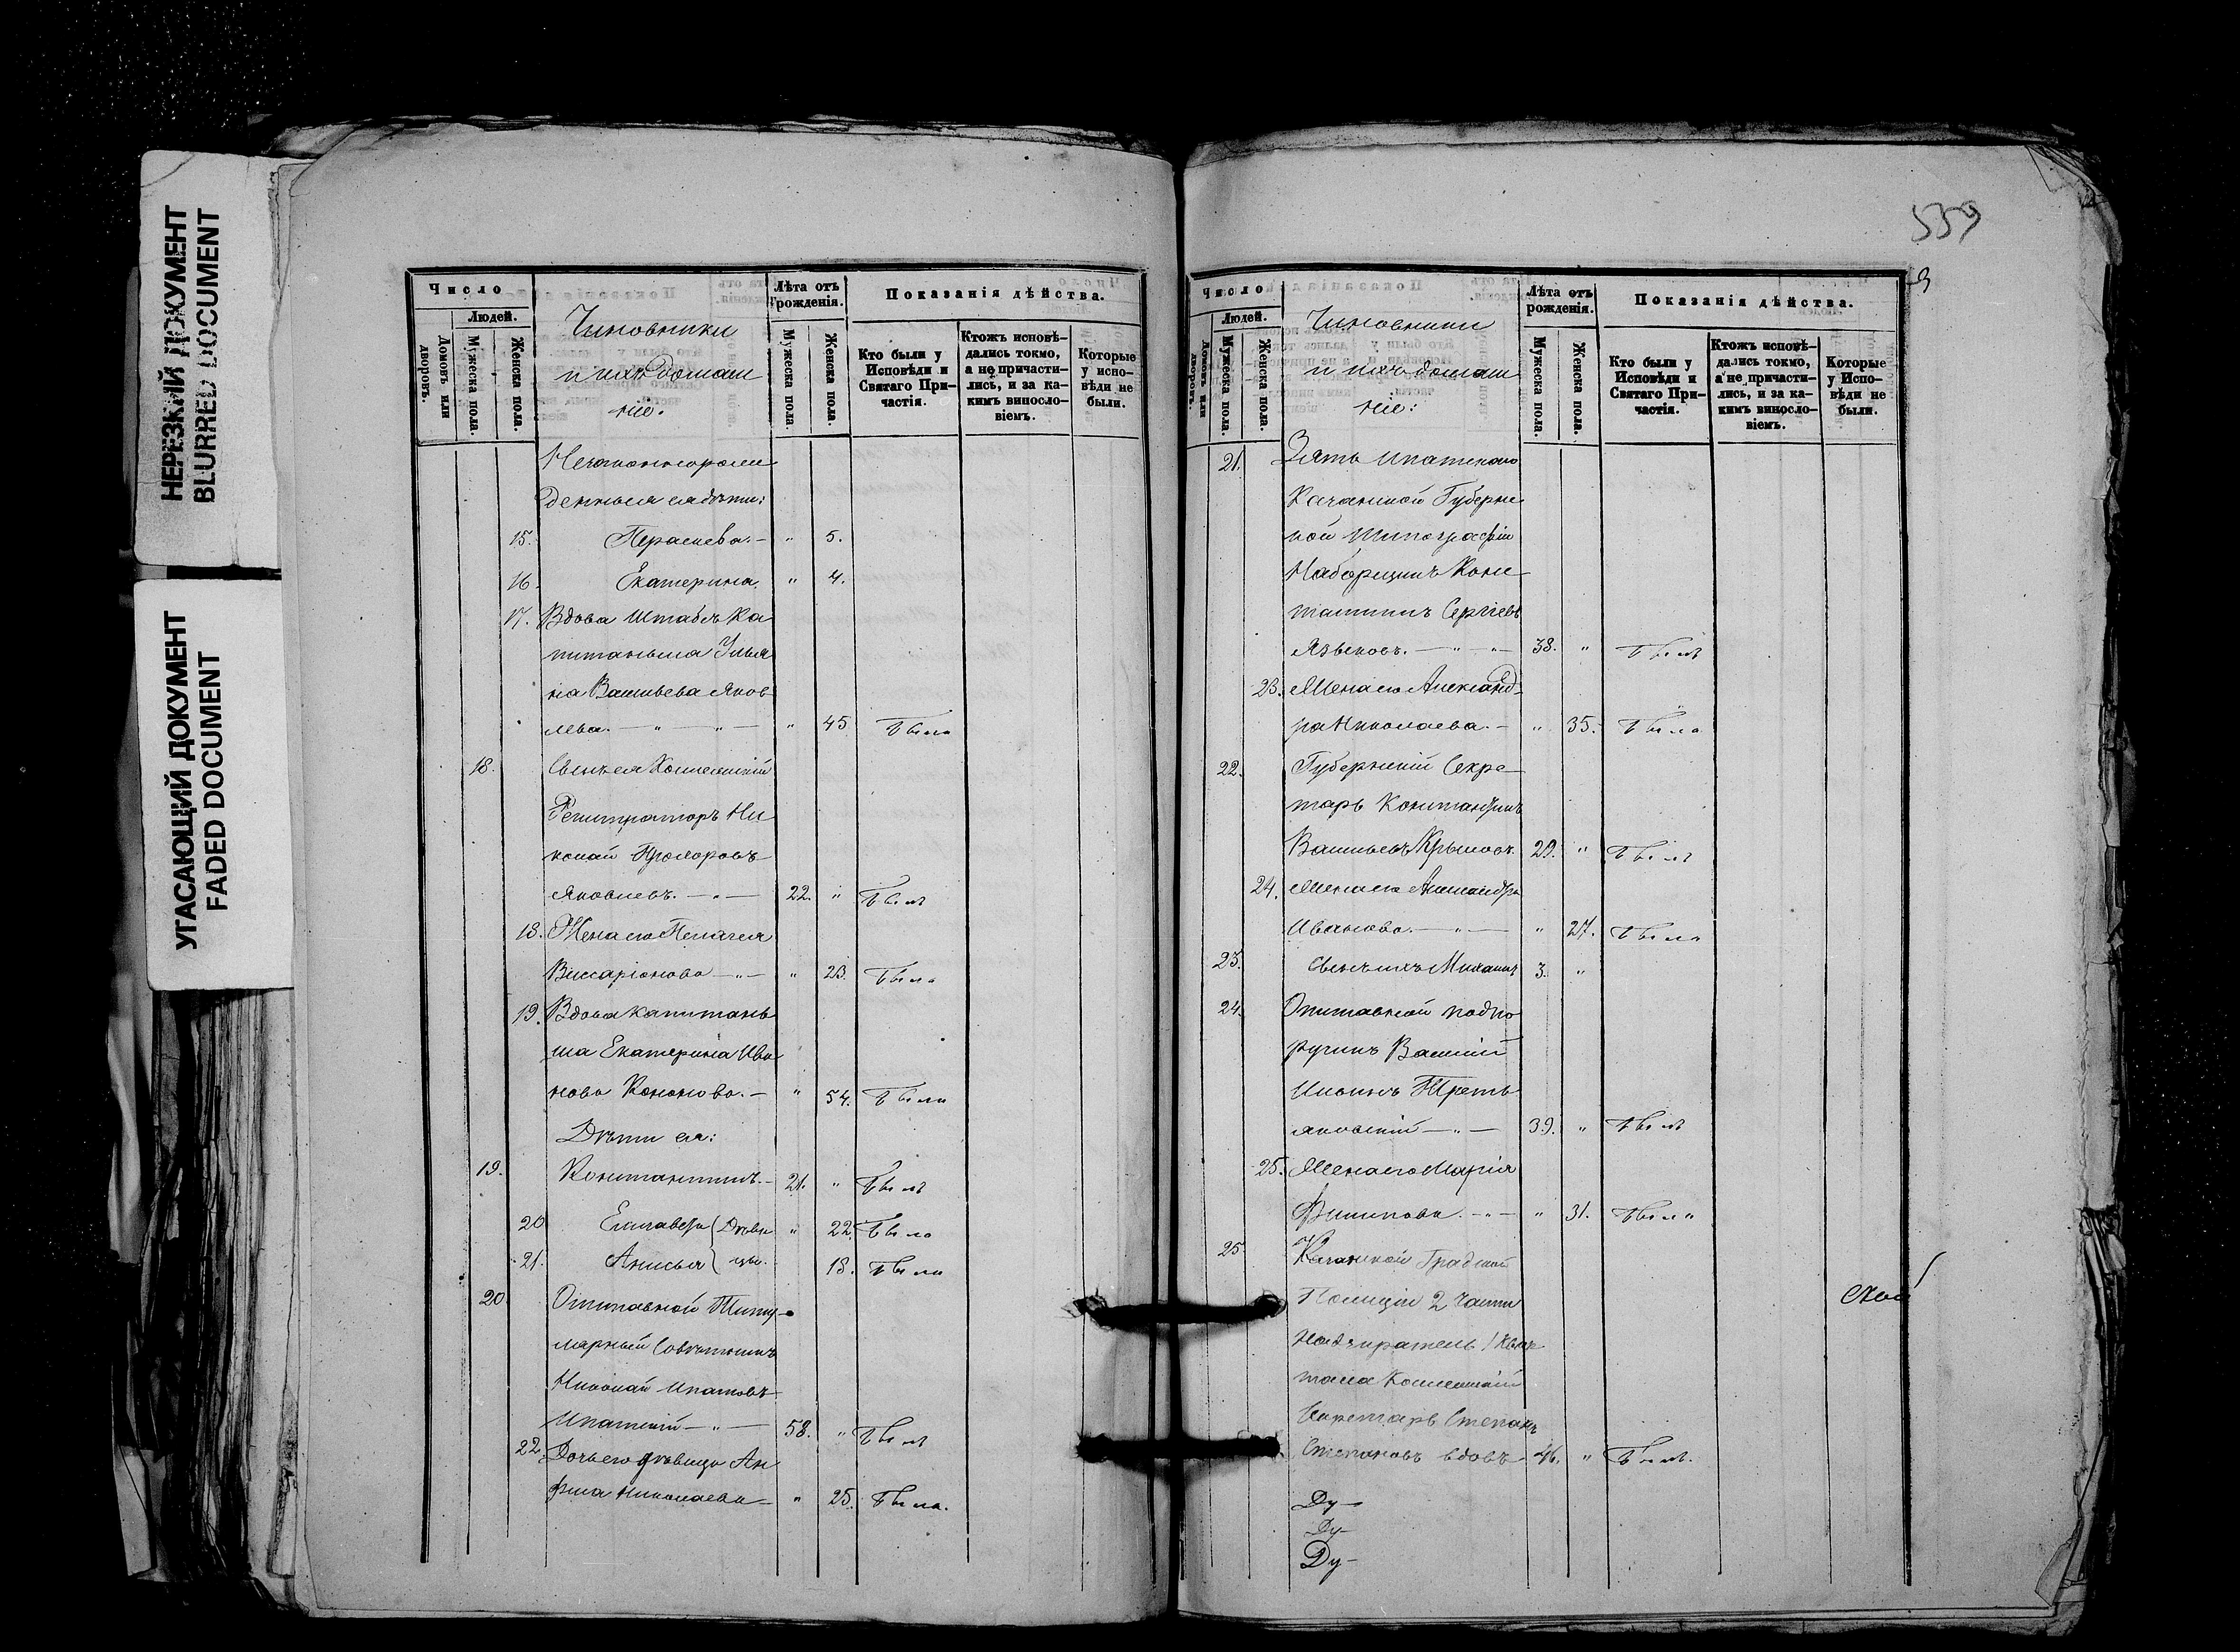 НЕРЕЗКИЙ ДОКУМЕНТ
BLURRED DOCUMENT
УГАСАЮЩИЙ ДОКУМЕНТ
FADED DOCUMENT
Число
Людей.
Домовъ или дворовъ.
Мужеска пола.
Женска пола.
Чиновники
и ихъ домаш
ніе.
Лѣта отъ рожденія.
Мужеска пола.
Женска пола.
Показанія дѣйства.
Кто были у Исповѣди и Святаго Причастія.
Ктожъ исповѣдались токмо, а не причастились, и за какимъ винословіемъ.
Которые у исповѣди не были.
Незаконнорож
денныя ея дѣти:
15. Параскева. — " 5.
16. Екатерина. " 4.
17. Вдова Штабсъ Ка
питанша Улья
на Васильева Яков
лева. — " — " — " 45 Была
18. Сынъ ея Коллежскій
Регистраторъ Ни
колай Прохоровъ
Яковлевъ. — " — 22. " Былъ
18. Жена его Пелагея
Виссаріонова — " — " 23. Была
19. Вдова Капитань
ша Екатерина Ива
нова Кононова. — " 54. Была
Дѣти ея:
19. Константинъ. — 21. " Былъ
20 Елизавета Дѣви " 22. Была
21. Анисья цы. 18. Была
20 Отставной Титу
лярный Совѣтникъ
Николай Ипатовъ
Ипатскій — " — 58. " Былъ
22. Дочь его дѣвица Ан
фиса Николаева — " 25. Была.
559
Число
Людей.
Домовъ или дворовъ.
Мужеска пола.
Женска пола.
Чиновники
и ихъ домаш
ніе:
Лѣта отъ рожденія.
Мужеска пола.
Женска пола.
Показанія дѣйства.
Кто были у Исповѣди и Святаго Причастія.
Ктожъ исповѣдались токмо, а не причастились, и за какимъ винословіемъ.
Которые у Исповѣди не были.
21. Зять Ипатскаго
Казанской Губернс
кой Типографіи
Наборщикъ Конс
тантинъ Сергіевъ
Языковъ. — " — " — 38. " Былъ
23. Жена его Александ
ра Николаева. — " 35. Была
22. Губернскій Секре
тарь Константинъ
Васильевъ Крыловъ. 29. " Былъ
24. Жена его Александра
Иванова. — " — " 27. Была
23. Сынъ ихъ Михаилъ 3. "
24. Отставной подпо
ручикъ Василій
Третья
яковскій — " — 39. " Былъ
25. Жена его Марія
Филипова. — " — " 31. Была
25 Казанской Градской
Полиціи 2 части
Надзиратель 1 Квар
тала Коллежскій
Секретарь Степанъ
Степановъ вдовъ 46. " Былъ.
Ду —
Ду —
Ду —
ской